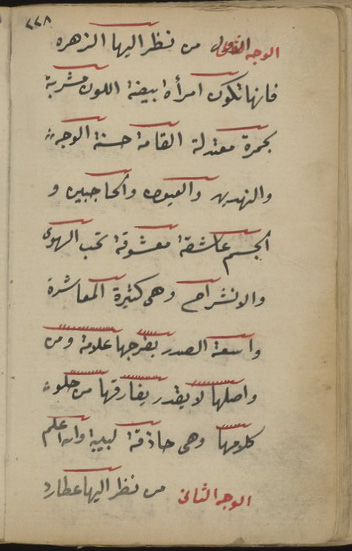 ٢٢٨
الوجه الاول من نظر اليها الزهره
فانها تكون امرأة بيضة اللون مشربة
بحمرة معتدلة القامة حسنة الوجه
والنهدين والعيون والحاجبين و
الجسم عاشقة معشوقة تحب الهوى
والانشراح وهى كثيرة المعاشرة
واسعة الصدر بفرجها علامة ومن
واصلها لا يقدر يفارقها من حلاوة
كلامها وهى حاذقة لبيبة والله اعلم
الوجه الثانى من نظر اليها عطارد